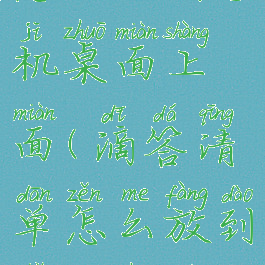 jī zhuō miàn shàng
机桌面上
miàn dī dá qīng
面(滴答清
dān zěn me fàng dào
单怎么放到